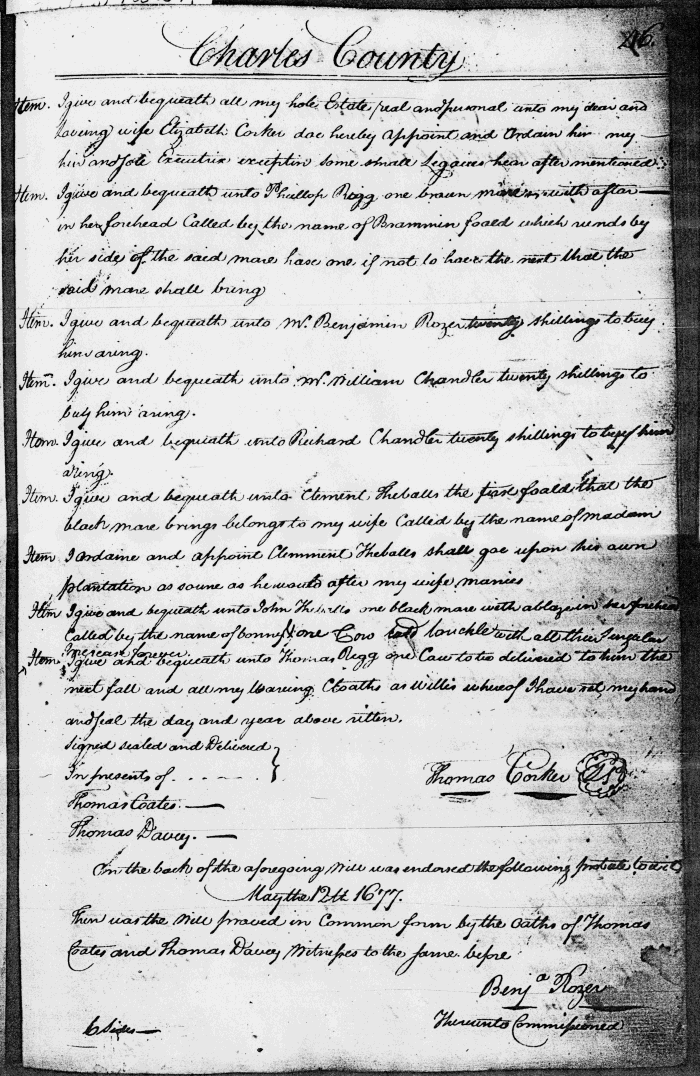 46.
Charles County
Item. I give and bequeath all my hole Estate real and personal unto my dear and
loveing wife Elyzabeth Corker doe hereby appoint and Ordain her my
her and sole Executrix exceptin some small Legacies hear after mentioned.
Item. I give and bequeath unto Phallop Regg one brown mare with a ster
in her forehead Called by the name of Brammin foald which runds by
her side of the said mare have one if not to have the next that the
said mare shall bring
Item. I give and bequeath unto Mr. Benjamin Rozer twenty shillings to buy
him aring.
Item. I give and bequeath unto Mr. William Chandler twenty shillings to
buy him aring.
Item. I give and bequeath unto Richard Chandler twenty shillings to buy him
aring.
Item. I give and bequeath unto Clement Theballs the first foald that the
black mare brings belongs to my wife Called by the name of madam
Item I ordaine and appoint Clemment Theballs shall goe upon his own
plantation as soune as he would after my wife maries
Item I give and bequeath unto John Theballs one black mare with ablaze in her forehead
Called by the name of bonny & one Cow buckle with all their
Increase forever.
Item. I give and bequeath unto Thomas Regg one Cow to be delivered to him the
next fall and all my waring Cloaths as Willis whereof I have set my hand
and seal the day and year above ritten.
Signed sealed and Delivered
In presents of . . - . . .
Thomas Corker
Thomas Coates.
Thomas Davey.
On the back of the aforegoing Will was endorsed the following probate to wit
May the 12th 1677.
Then was the Will proved in Common form by the Oaths of Thomas
Coates and Thomas Davey Witnesses to the same before
Benja Rozer
Thereunto Commissioned
6 Sides